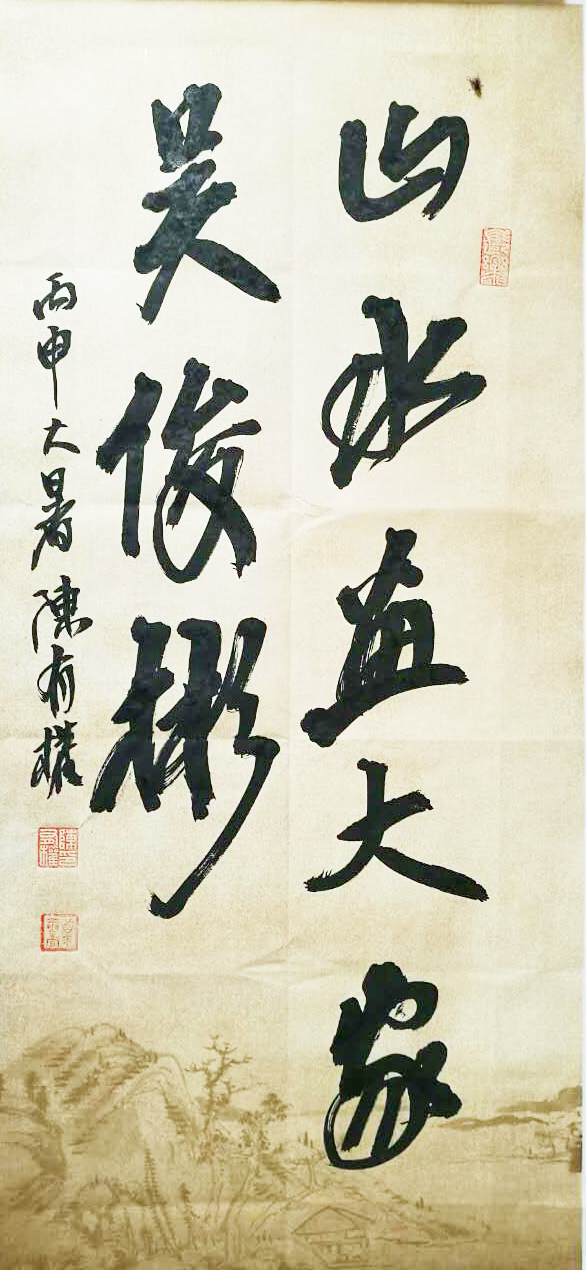 山水畫大家
吴俊彬
丙申大暑陳有權